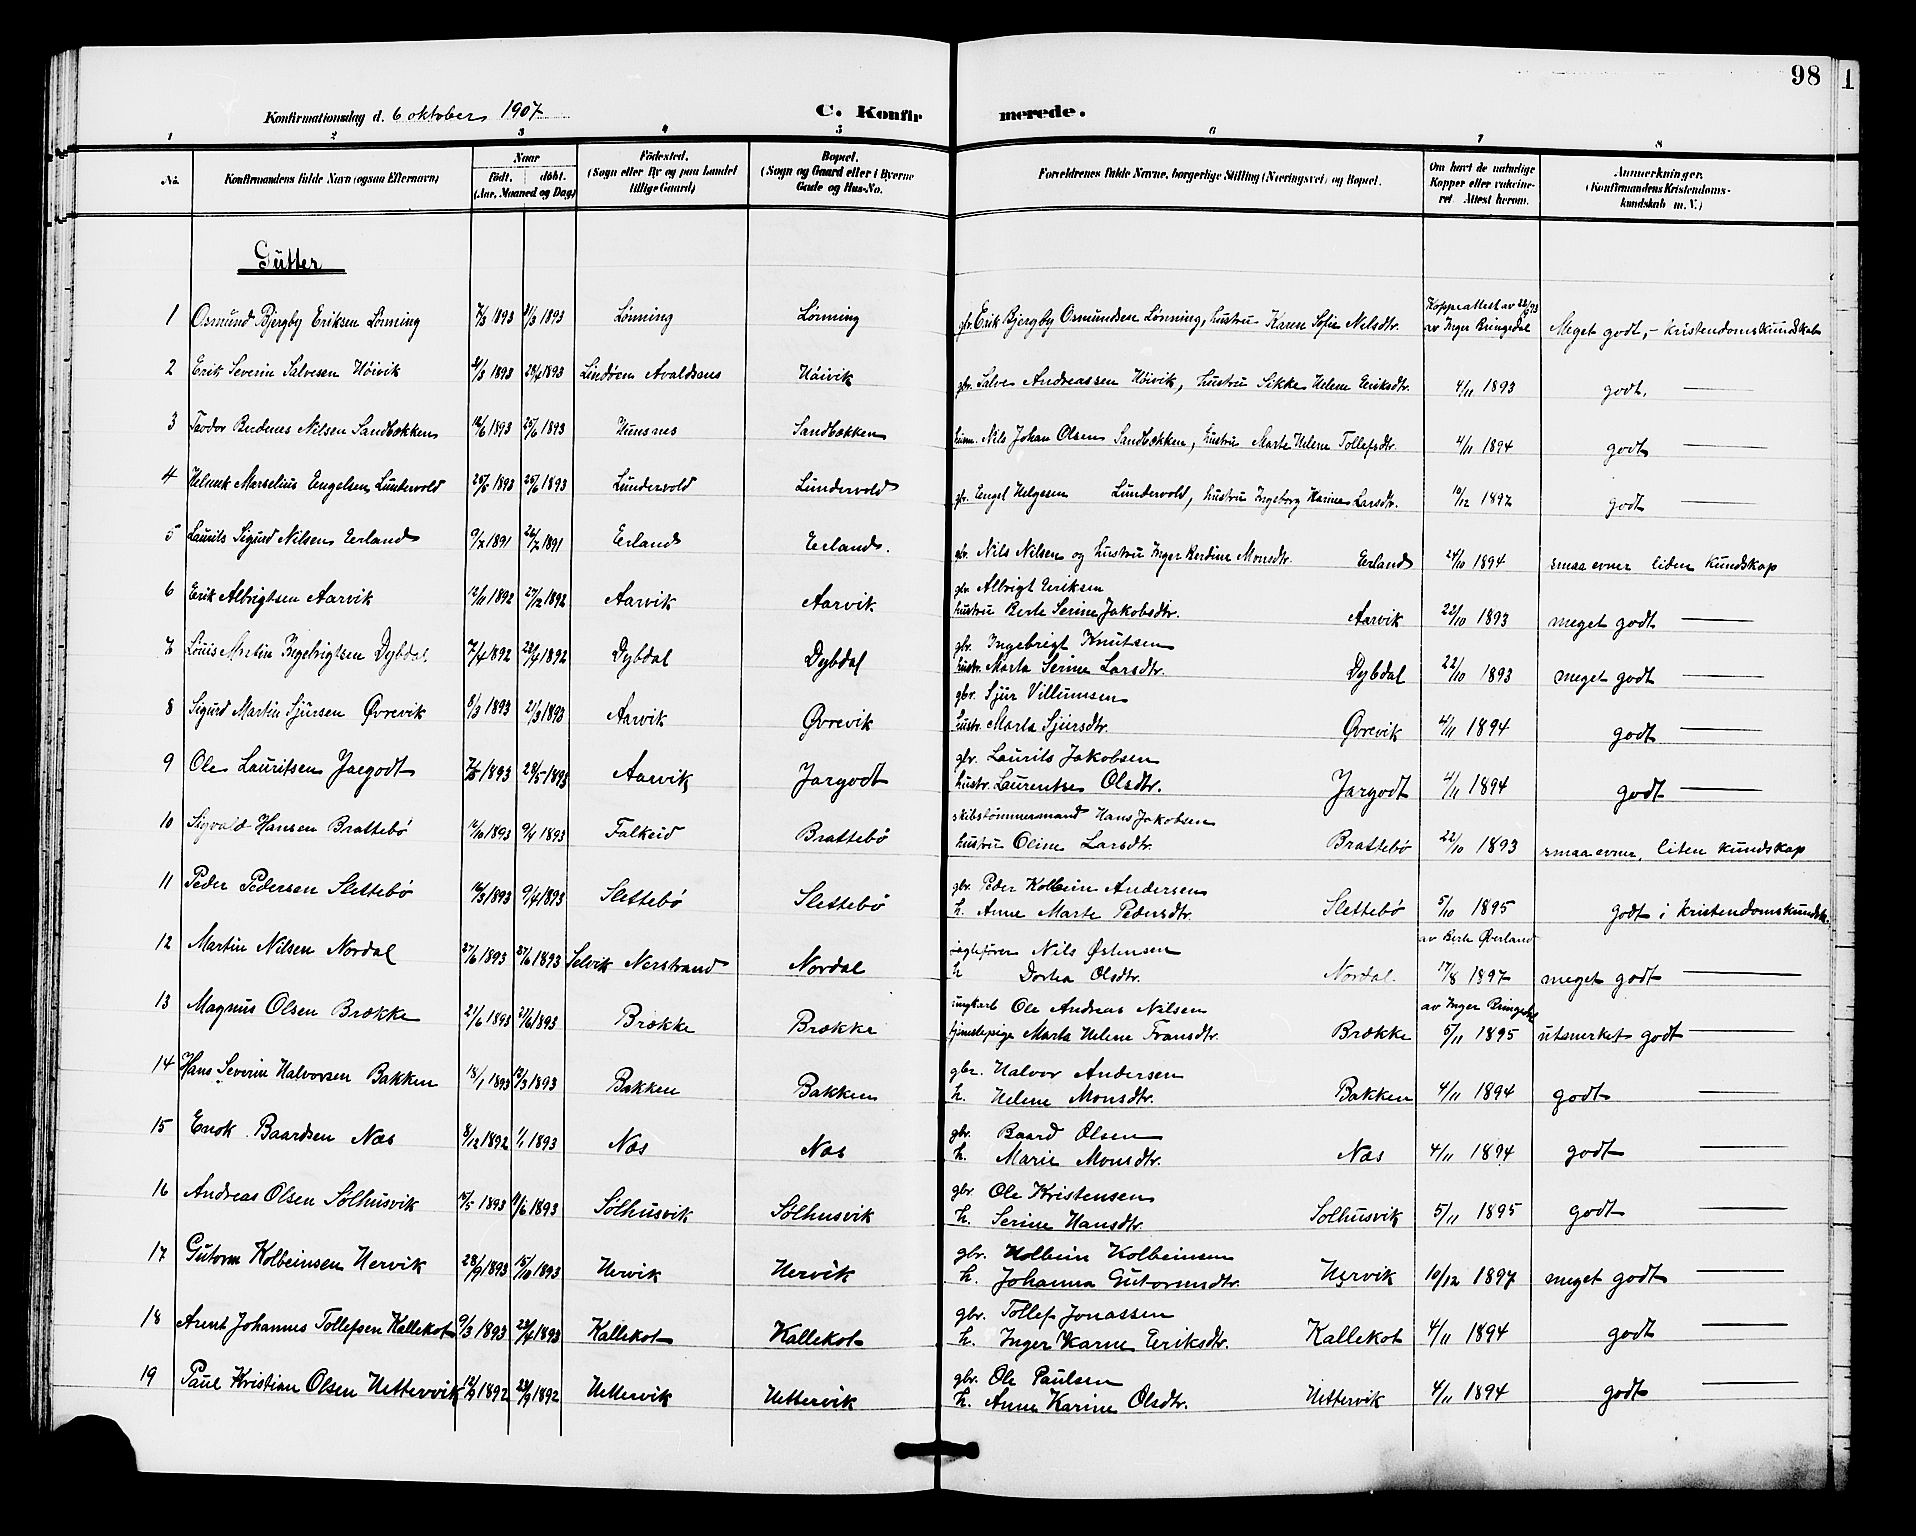 98
Konfirmationsdag d. 6 oktober 1907
C. Konfirmerede.
1 2 3 4 5 6 7 8
No. Konfirmandens fulde Navn (ogsaa Efternavn) Naar födt. döbt. (Aar, Maaned og Dag) Födested. (Sogn eller By og paa Landet tillige Gaard) Bopæl. (Sogn og Gaard eller i Byerne Gade og Hus-No. Forældrenes fulde Navne, borgerlige Stilling (Næringsvei) og Bopæl. Om havt de naturlige Kopper eller vakcineret. Attest herom. Anmærkninger. (Konfirmandens Kristendomskundskab m. V.)
Gutter
1 Osmund Bjergby Eriksen Lønning 7/3 1893 31/3 1893 Lønning Lønning gbr. Erik Bjergby Osmundsen Lønning, hustru Karen Sofie Nilsdtr. Koppeattest av 22/9 93 av Inger Bringedal Meget godt, - kristendomskundskab
2 Erik Severin Salvesen Höivik 1893 23/4 1893 Avaldsnes Höivik gbr. Salve Andreassen Höivik, hustru Sikke Helene Eriksdtr. 4/11 1893 godt.
3 Nilsen Sandbækken 12/6 1893 25/6 1893 Hunsnes Sandbækken husm. Nils Johan Olsen Sandbækken, hustru Marte Helene Tollefsdtr. 4/11 1894 godt
4 Marselius Engelsen Lundervold 1893 25/6 1893 Lundervold Lundervold gbr. Engel Helgesen Lundervold, hustru Ingeborg Karine Larsdtr. 10/12 1897 godt
5 Laurits Sigurd Nilsen Eerland 9/2 1891 22/2 1891 Eerland Eerland. gbr. Nils Nilsen og hustru Inger Berdine Monsdtr. Erland 24/10 1894 smaa evner liden kundskap
6 Erik Albrigtsen Aarvik 12/11 1892 27/12 1892 Aarvik Aarvik gbr. Albrigt Eriksen
hustru Berte Serine Jakobsdtr. Aarvik 22/10 1893 meget godt
7 Louis Martin Ingebrigtsen Dybdal 7/4 1892 29/4 1892 Dybdal Dybdal gbr. Ingebrigt Knutsen
hustr. Marta Serine Larsdtr. Dybdal 22/10 1893 meget godt
8 Sigurd Martin Sjursen Øvrevik 8/3 1893 21/3 1893 Aarvik Øvrevik gbr. Sjur Villumsen
hustr. Marta Sjursdtr. Øvrevik 4/11 1894 godt
9 Ole Lauritsen Jargodt 1893 28/5 1893 Aarvik Jargodt gbr. Laurits Jakobsen
hustr. Laurentse Olsdtr. Jargodt 4/11 1894 godt
10 Sigvald Hansen Brattebö 1893 9/4 1893 Falkeid Brattebö skibstömmermand Hans Jakobsen
hustru Oline Larsdtr. Brattebö 22/10 1893 smaa evner, liten kundskap
11 Peder Pedersen Slettebö 16/3 1893 9/4 1893 Slettebö Slettebö gbr. Peder Kolbein Andersen
h. Anne Marte Pedersdtr. Slettebö 5/10 1895 godt i kristendomskundsk.
12 Martin Nilsen Nordal 27/6 1893 27/6 1893 Selvik Nerstrand Nordal jagtefører Nils Østensen
h. Dortea Olsdtr. Nordal. av Berte Øverland 17/8 1897 meget godt
13 Magnus Olsen Brække 21/6 1893 27/6 1893 Brække Brække ungkarl Ole Andreas Nilsen
tjenestepige Marta Helene Fransdtr. Brække av Inger Bringedal 5/11 1895 utmerket godt
14 Hans Severin Halvorsen Bakken 18/1 1893 12/3 1893 Bakken Bakken gbr. Halvor Andersen
h. Helene Monsdtr. Bakken 4/11 1894 godt
15 Enok Baardsen Næs 8/12 1892 1/1 1893 Næs Næs gbr. Baard Olsen
h. Marie Monsdtr. Næs 4/11 1894 godt
16 Andreas Olsen Sölhusvik 1893 11/6 1893 Sölhusvik Sölhusvik gbr. Ole Kristensen
h. Serine Hansdtr. Solhusvik 5/11 1895 godt
17 Gutorm Kolbeinsen Hervik 28/9 1893 15/10 1893 Hervik Hervik gbr. Kolbein Kolbeinsen
h. Johanna Gutormsdtr. Hervik 10/12 1897 meget godt
18 Arent Johannes Tollefsen Kallekot 9/3 1893 23/4 1893 Kallekot Kallekot gbr. Tollef Jonassen
h. Inger Karne Eriksdtr. Kallekot 4/11 1894 godt
19 Paul Kristian Olsen Hettervik 12/9 1892 24/9 1892 Hettervik Hettervik gbr. Ole Paulsen
h. Anne Karine Olsdtr. Hettervik 4/11 1894 godt